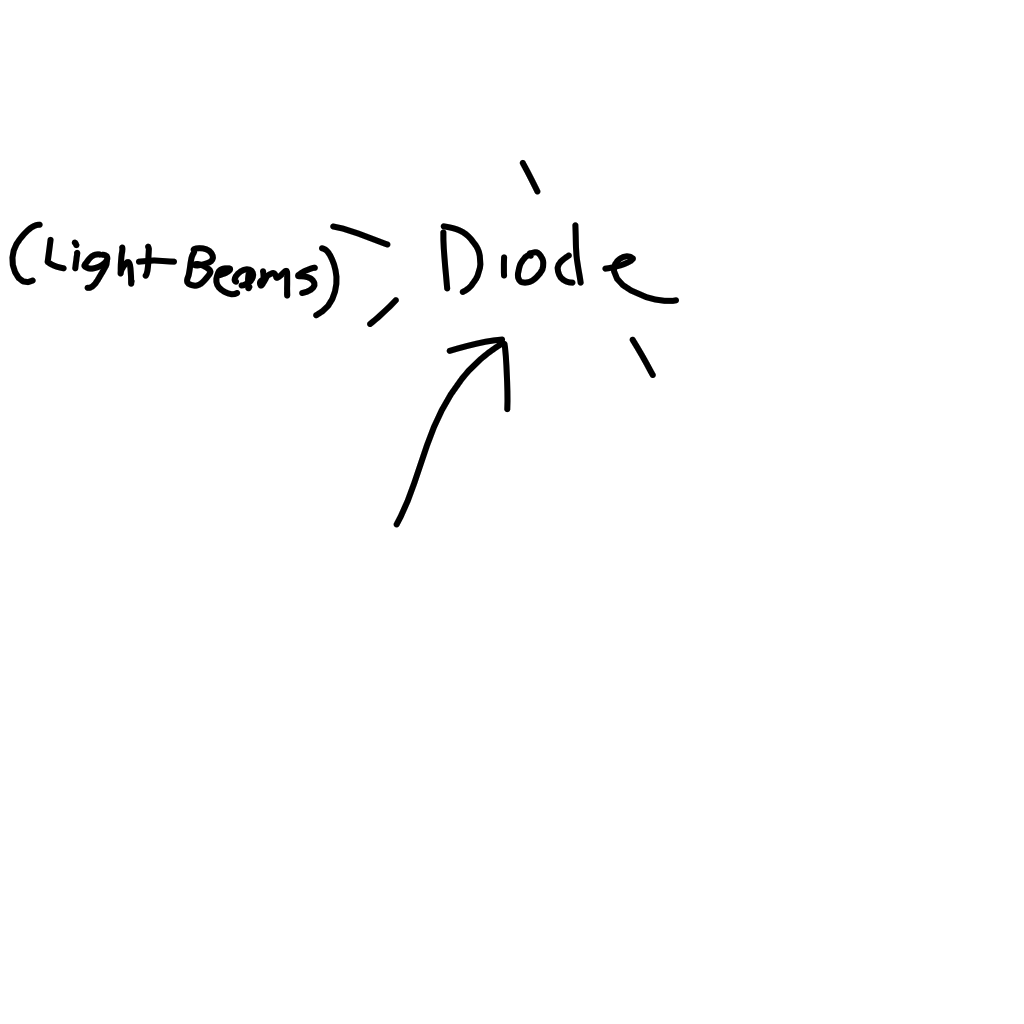 (Light Beams) Diode